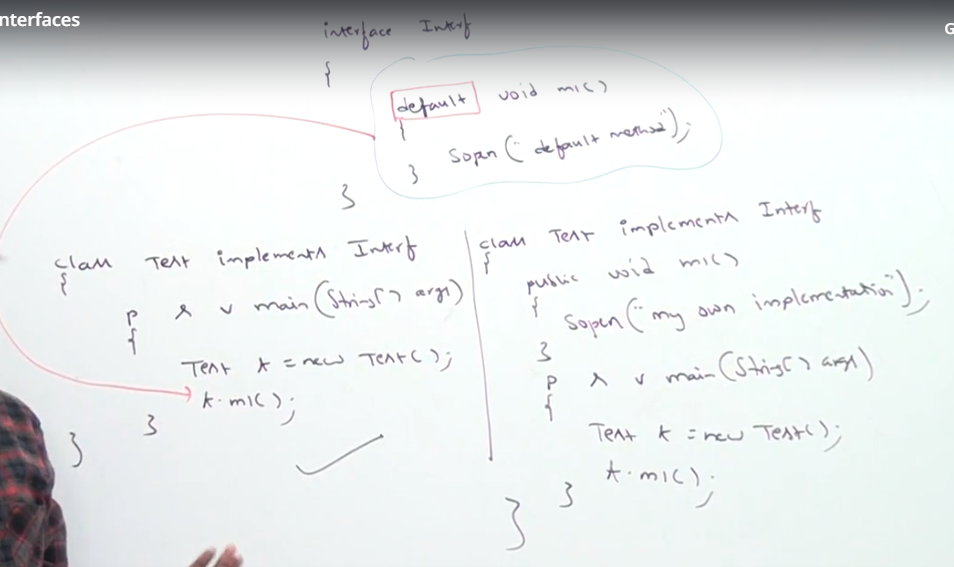 nterfaces
G
interface Interf
{
default void m1()
{
Sopln("default method");
}
}
class Test implements Interf
{
p s v main(String[] args)
{
Test t = new Test();
t.m1();
}
}
class Test implements Interf
{
public void m1()
{
Sopln("my own implementation");
}
p s v main(String[] args)
{
Test t = new Test();
t.m1();
}
}